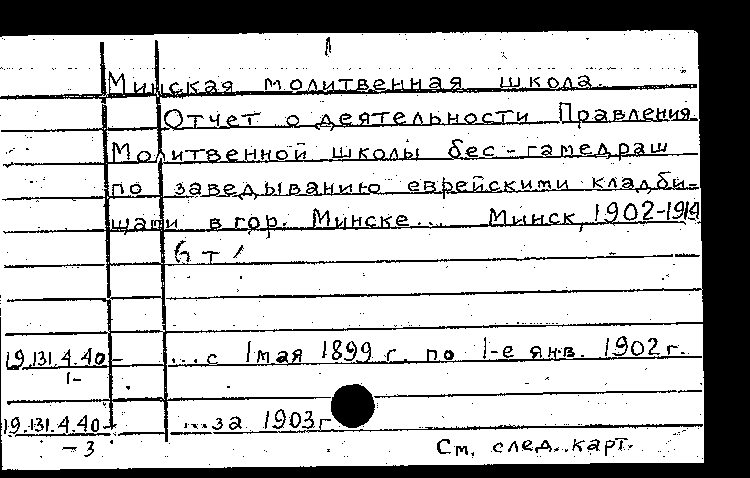 1
Минская молитвенная школа.
Отчет о деятельности Правления
Молитвенной школы бес-гамедраш
по заведыванию еврейскими кладби=
щами в гор. Минске... Минск, 1902-1914
6 т
19.131.4.40- ...с 1 мая 1899 г. по 1-е янв. 1902 г.
1-
19.131.4.40- ...за 1903 г
-3
См. след. карт.